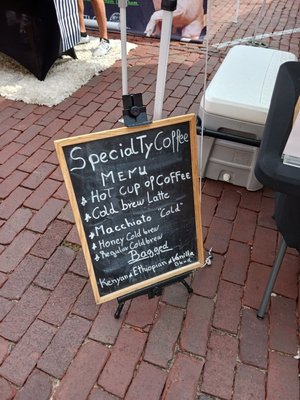 Specialty Coffee
Menu
* Hot cup of Coffee
* Cold brew Latte
* Macchiato "Cold"
* Honey Cold brew
* Regular Coldbrew
Bagged
Kenyan * Ethiopian * Vanilla